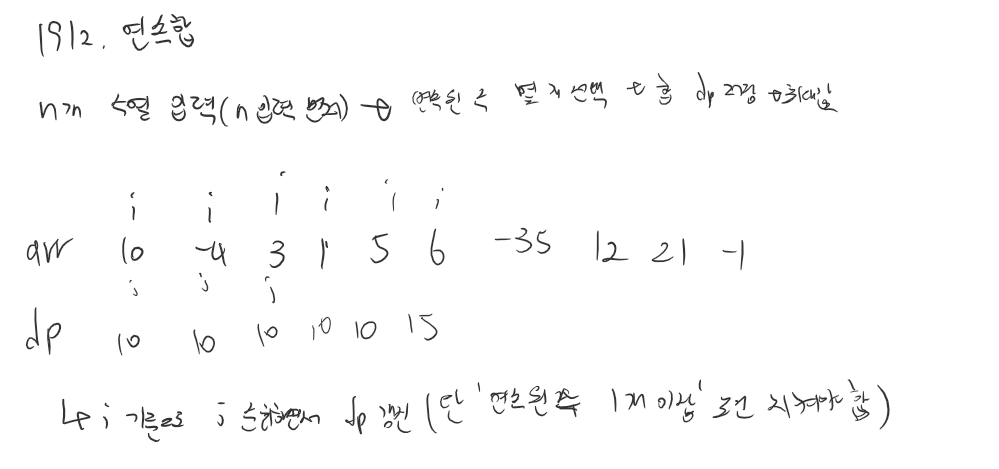 1912. 연속합
n개 수열 입력(n 입력 먼저) → 연속된 수 몇 개 선택 → 합 dp 저장 → 최대값
i i i i i i
arr 10 -4 3 1 5 6 -35 12 21 -1
j j j
dp 10 10 10 10 10 15
↳ i 기준으로 j 순회하면서 dp 갱신 (단 '연속된 수 1개 이상' 조건 지켜야 함)